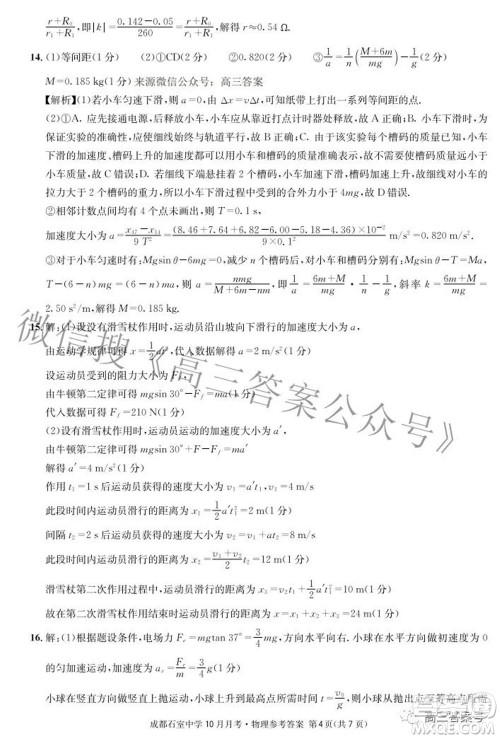 r+R₀/r₁+R₁, 即|k|=r+R₀/r₁+R₁=0.142-0.05/260, 解得 r≈0.54 Ω.
14. (1)等间距(1分) (2)①CD(2分) ②0.820(2分) ③1/a=1/n(M+6m/mg)-1/g(2分)
M=0.185 kg(1分) 来源微信公众号:高三答案
【解析】(1)若小车匀速下滑,则 a=0,由 Δx=vΔt,可知纸带上打出一系列等间距的点.
(2)①A. 应先接通电源,后释放小车,小车应靠近打点计时器处释放,故 A 错误;B. 实验时,为
保证实验的准确性,要使得细线始终与轨道平行,故 B 错误;C. 由于该实验每个槽码的质量已知,小车
下滑的加速度、槽码上升的加速度都可以用小车和槽码的质量表示,故不需要槽码的质量远小
于小车质量,故 C 错误;D. 若细线下端悬挂着 2 个槽码,则槽码上升的过程中,细线对小车的
拉力大于 2 个槽码的重力,所以小车下滑过程中受到的合外力小于 4mg,故 D 错误.
②相邻计数点间均有 4 个点未画出,则 T=0.1 s,
9 T²
9×0.1²
m/s²=0.820 m/s².
③对于小车匀速时有:Mgsin θ=6mg,减少 n 个槽码后,对小车和槽码分别有:Mgsin θ-T=Ma,
T-(6-n)mg=(6-n)ma,则 a=nmg/M+6m-nm,即1/a=6m+M/mg·1/n-1/g,斜率 k=6m+M/mg=
2.50 s²/m,解得 M=0.185 kg.
15. 解:(1)设没有滑雪杖作用时,运动员沿山坡向下滑行的加速度大小为 a,
由运动学规律可得 x=1/2at²,代入数据解得 a=2 m/s²(1分)
设运动员受到的阻力大小为 F_f,
由牛顿第二定律可得 mgsin 30°-F_f=ma(1分)
代入数据可得 F_f=210 N(1分)
(2)设有滑雪杖作用时,运动员的加速度大小为 a′,
由牛顿第二定律可得 mgsin 30°+F-F_f=ma′(1分)
解得 a′=4 m/s²(1分)
作用 t₁=1 s 后运动员获得的速度大小为 v₁=a′t₁,v₁=4 m/s
此段时间内运动员滑行的距离为 x₁=1/2a′t₁²=2 m(1分)
间隔 t₂=2 s 后运动员获得的速度大小为 v₂=v₁+at₂=8 m/s
此段时间内运动员滑行的距离为 x₂=v₁+v₂/2t₂=12 m(1分)
滑雪杖第二次作用过程中,运动员滑行的距离为 x₃=v₂t₁+1/2a′t₁²=10 m(1分)
故在第二次作用后共滑行的距离为 x=x₁+x₂+x₃=24 m(1分)
16. 解:(1)根据题设条件,电场力 F_e=mgtan 37°=3/4mg,小球在水平方向做初速度为 0
的匀加速运动,加速度为 a_x=F_e/m=3/4g(1分)
小球在竖直方向做竖直向上抛运动,小球到达最高点的时间
成都石室中学 10 月月考·物理参考答案 第 4 页(共 7 页)
微信搜《高三答案公众号》
高三答案号